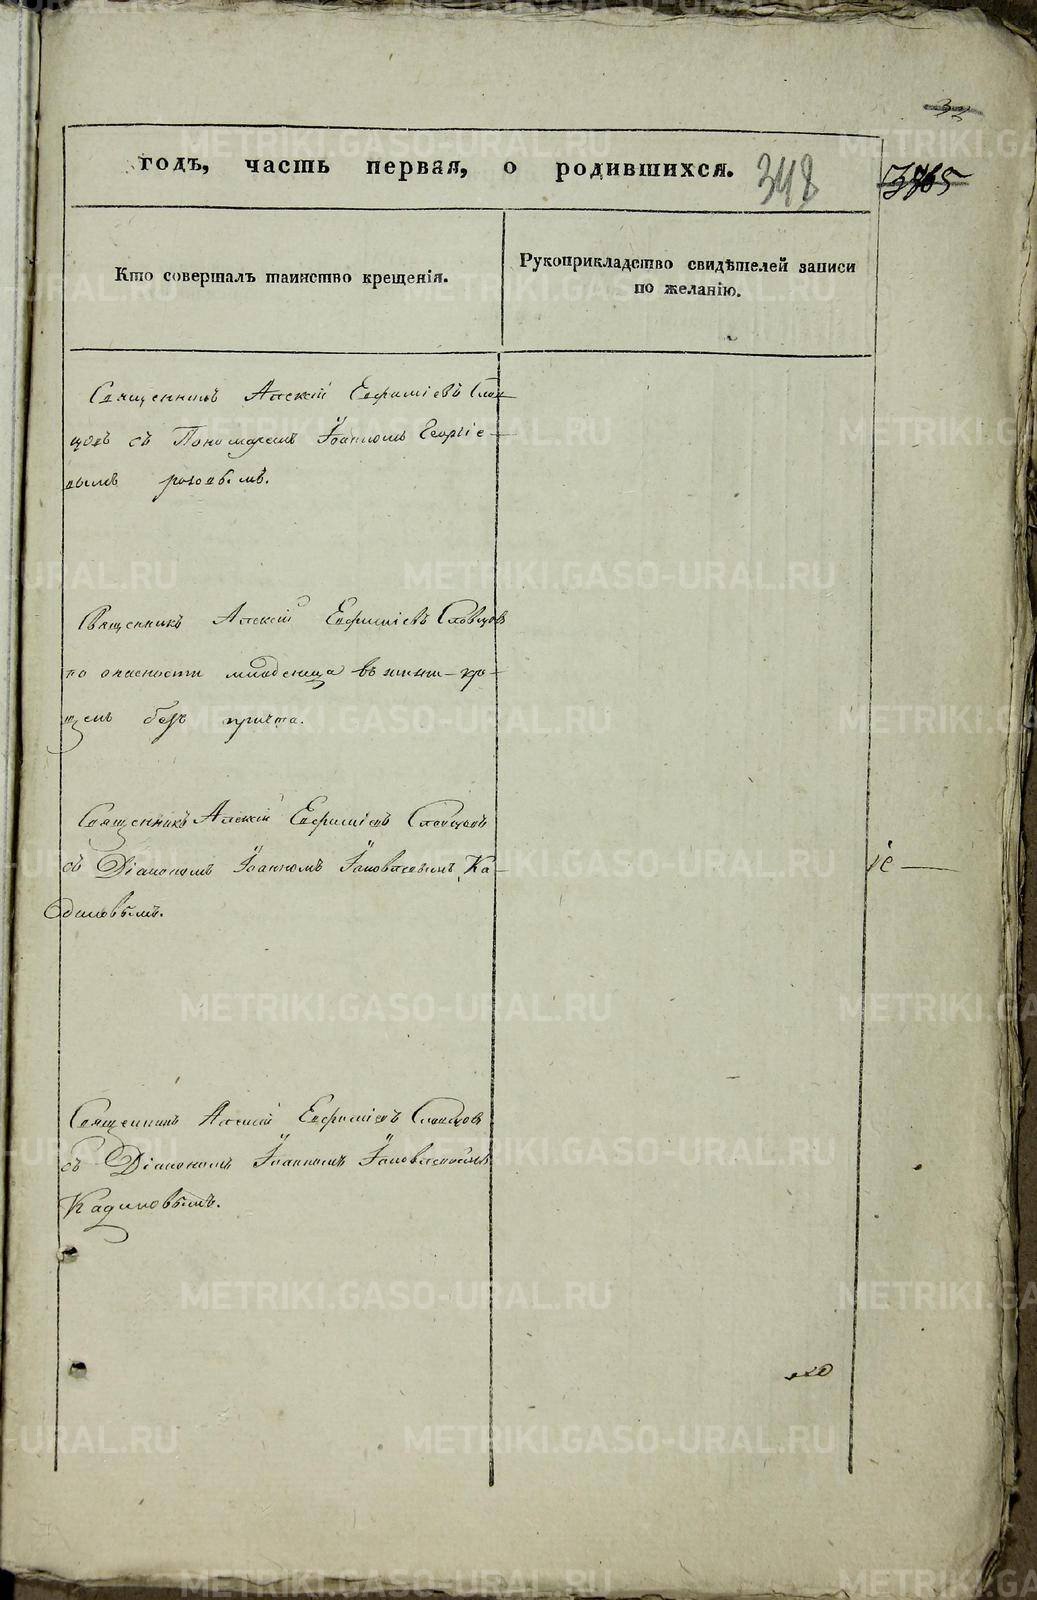 годъ, часть первая, о родившихся.
348
Кто совершалъ таинство крещенія.
Рукоприкладство свидѣтелей записи
по желанію.
Священникъ Алексій Евфиміевъ Слов-
цовъ съ Пономаремъ Іоанномъ Георгіе-
вымъ
Священникъ Алексій Евфиміевъ Словцов
по опасности младенца въ жизни кре-
щенъ безъ причта.
Священникъ Алексій Евфиміевъ Словцовъ
съ Діакономъ Іоанномъ Іаковлевымъ Ка-
диковымъ.
Священникъ Алексій Евфиміевъ Словцов
съ Діакономъ Іоанномъ Іаковлевымъ
Кадиковымъ.
METRIKI.GASO-URAL.RU